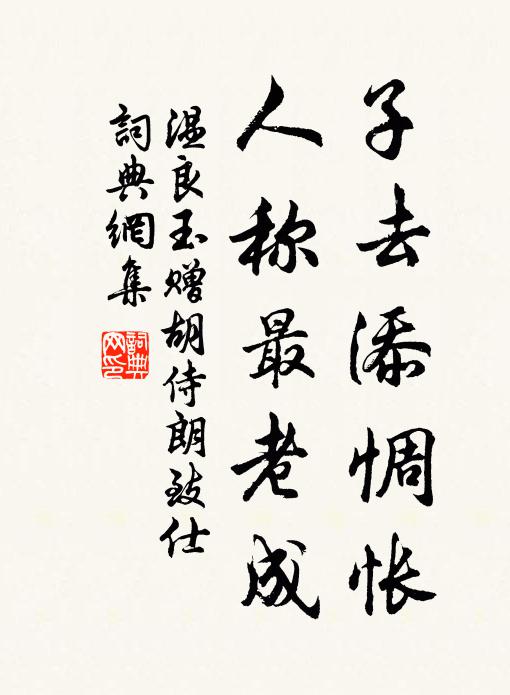 子去添惆怅
人称最老成
温良玉赠胡侍朗致仕
詞典網集
詞典
网印